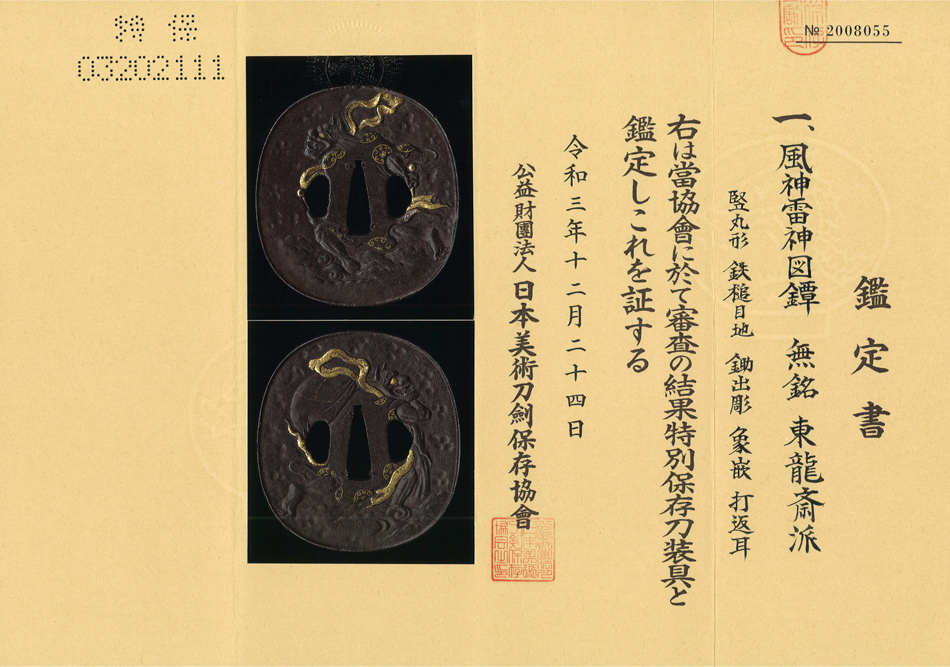 № 2008055
鑑定書
一、風神雷神図鐔 無銘 東龍斎派
竪丸形 鉄槌目地 鋤出彫 象嵌 打返耳
右は當協會に於て審査の結果特別保存刀装具と
鑑定しこれを証する
令和三年十二月二十四日
公益財團法人日本美術刀劍保存協會
特保
03202111